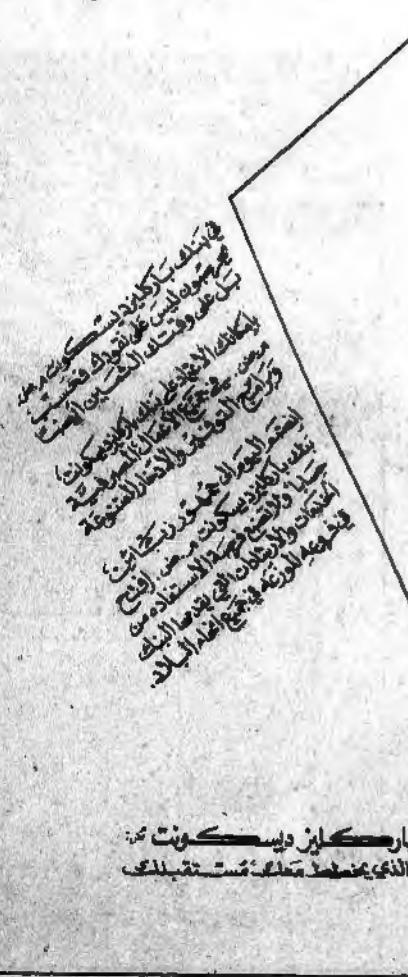 في بنك باركليز ديسكونت م.ض.
يحرصون ليس على نقودك فحسب
بل على وقتك الثمين أيضا
بإمكانك الاعتماد على بنك باركليز ديسكونت
م.ض. في جميع الأعمال المصرفية
وبرامج التوفير والادخار المتنوعة
انضم اليوم الى جمهور زبائن
بنك باركليز ديسكونت م.ض. إفتح
حسابا ولا تضع فرصة الاستفادة من
الخدمات والارشادات التي يقدمها البنك
في فروعه الموزعة في جميع انحاء البلاد.
باركليز ديسكونت
الذي يخطط معك مستقبلك